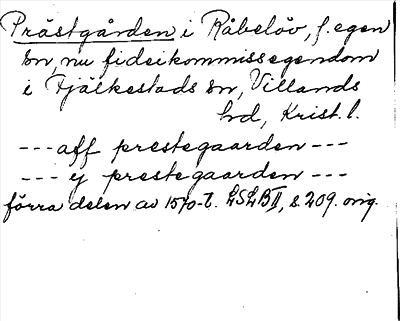 Prästgården i Råbelöv, f. egen
sn, nu fideikommissegendom
i Fjälkestads sn, Villands
hd, Krist. l.
--- aff prestegaarden ---
--- ij prestegaarden ---
förra delen av 1570-t. LSLB II, s. 209. orig.